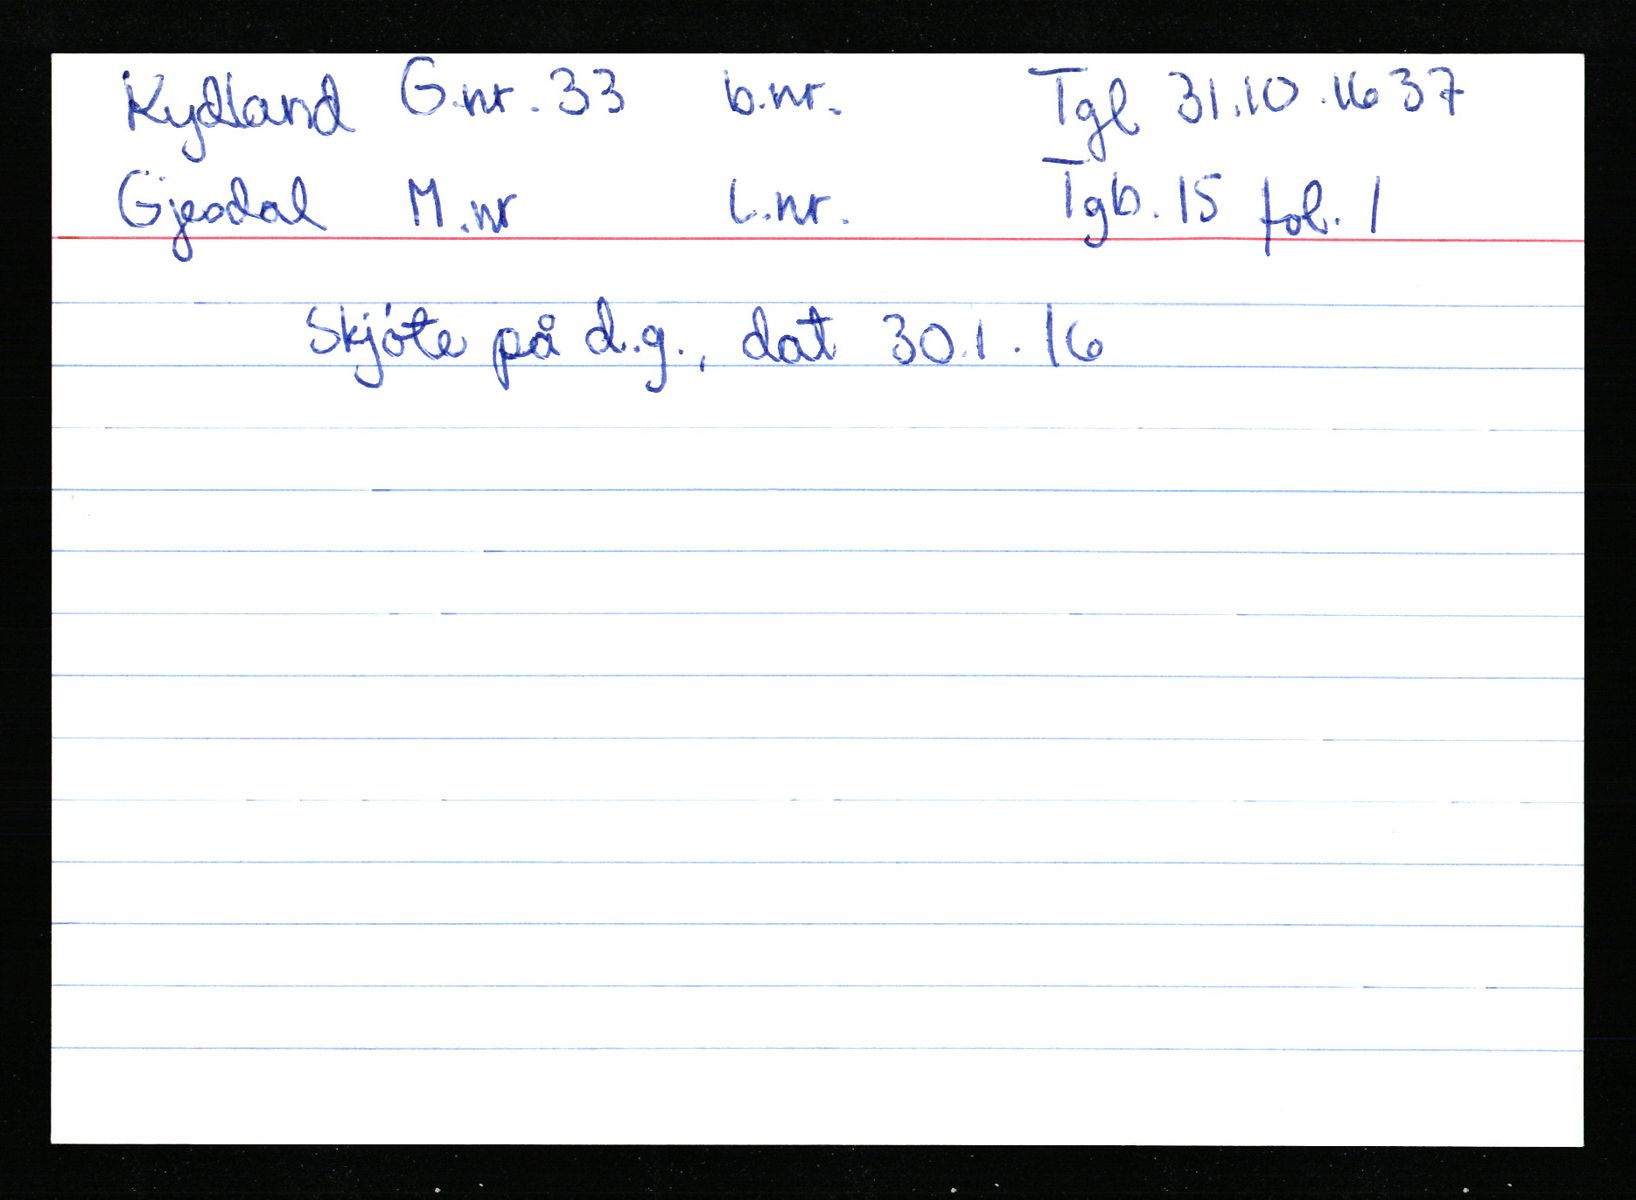 Kydland G.nr. 33 b.nr. Tgl 31.10.1637
Gjesdal M.nr L.nr. Tgb. 15 fol. 1
Skjøte på d.g., dat 30.1.16